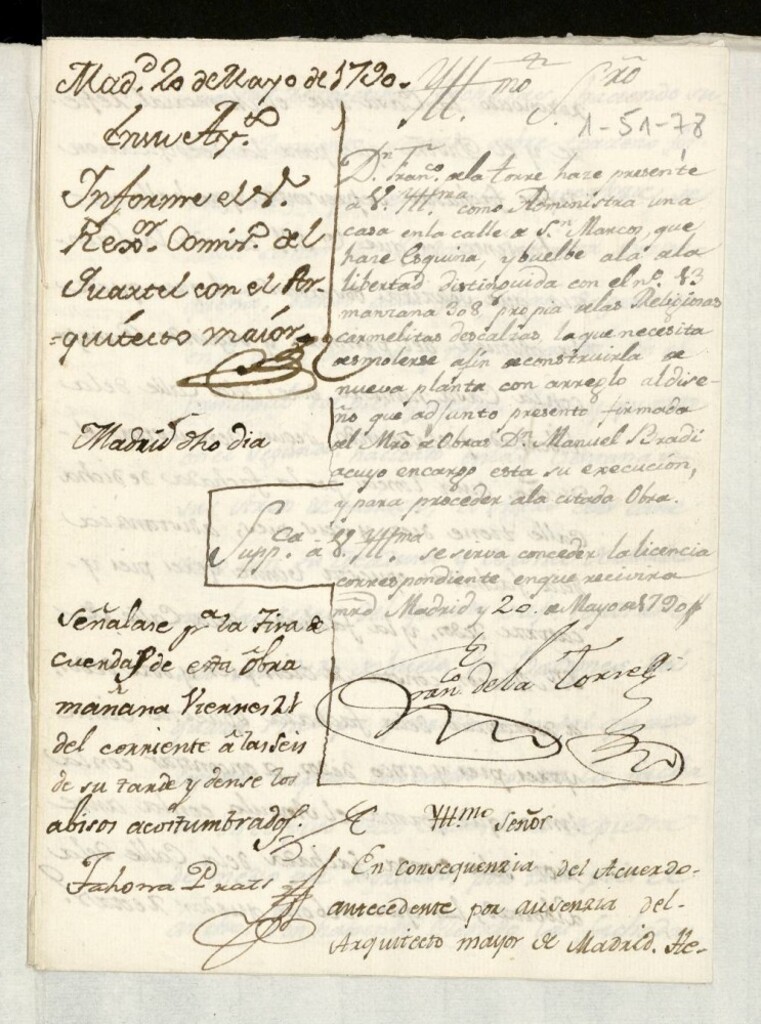 Mad.d 20 de Mayo de 1790.
En su Ay.to
Informe el S.r
Rex.or Comis.o del
Quartel con el Ar-
=quitecto maior
Madrid dho dia
Señalase p.a la Tira de
cuerdas de esta Obra
mañana Viernes 21
del corriente â las seis
de su tarde y dense los
abisos acostumbrados.
Yll.mo Sr.
1-51-78
D.n Fran.co de la torre haze presente
a V. Yll.ma como Administra una
casa en la calle de S.n Marcos, que
haze Esquina, y buelbe ala de la
libertad distinguida con el n.o 13
manzana 308 propia de las Religiosas
carmelitas descalzas, la que necesita
demolerse afin de construirla de
nueva planta con arreglo al dise-
ño que adjunto presento firmado
del Mro de Obras D.n Manuel Bradi
acuyo encargo esta su execución,
y para proceder ala citada Obra.
Supp.ca a V. Yll.ma se sirva conceder la licencia
correspondiente, enque recivira
mrd Madrid y 20. de Mayo de 1790
Fran.co dela Torre
Yll.mo Señor
En Consequenzia del Acuerdo-
antecedente por ausenzia del-
Arquitecto mayor de Madrid. He-